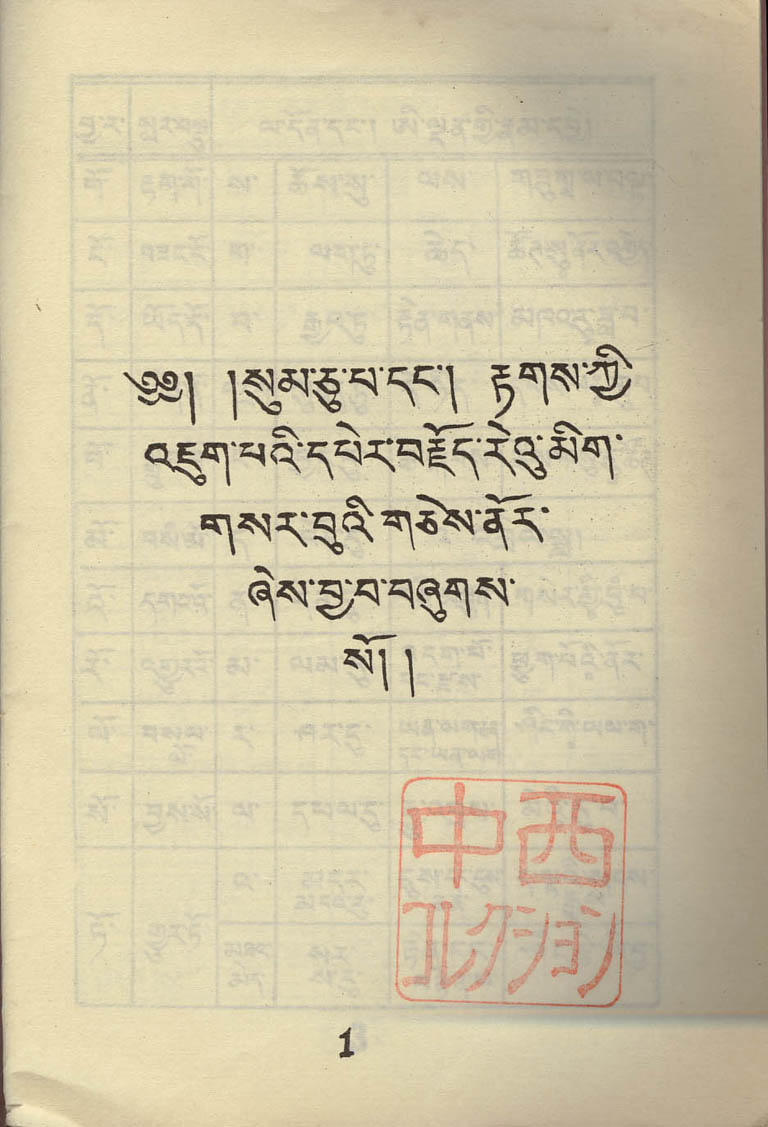 ༄༅། །སུམ་ཅུ་པ་དང་། རྟགས་ཀྱི་
འཇུག་པའི་དཔེར་བརྗོད་རེའུ་མིག་
གསར་བུའི་གཅེས་ནོར་
ཞེས་བྱ་བ་བཞུགས་
སོ། །
中西
コレクション
1